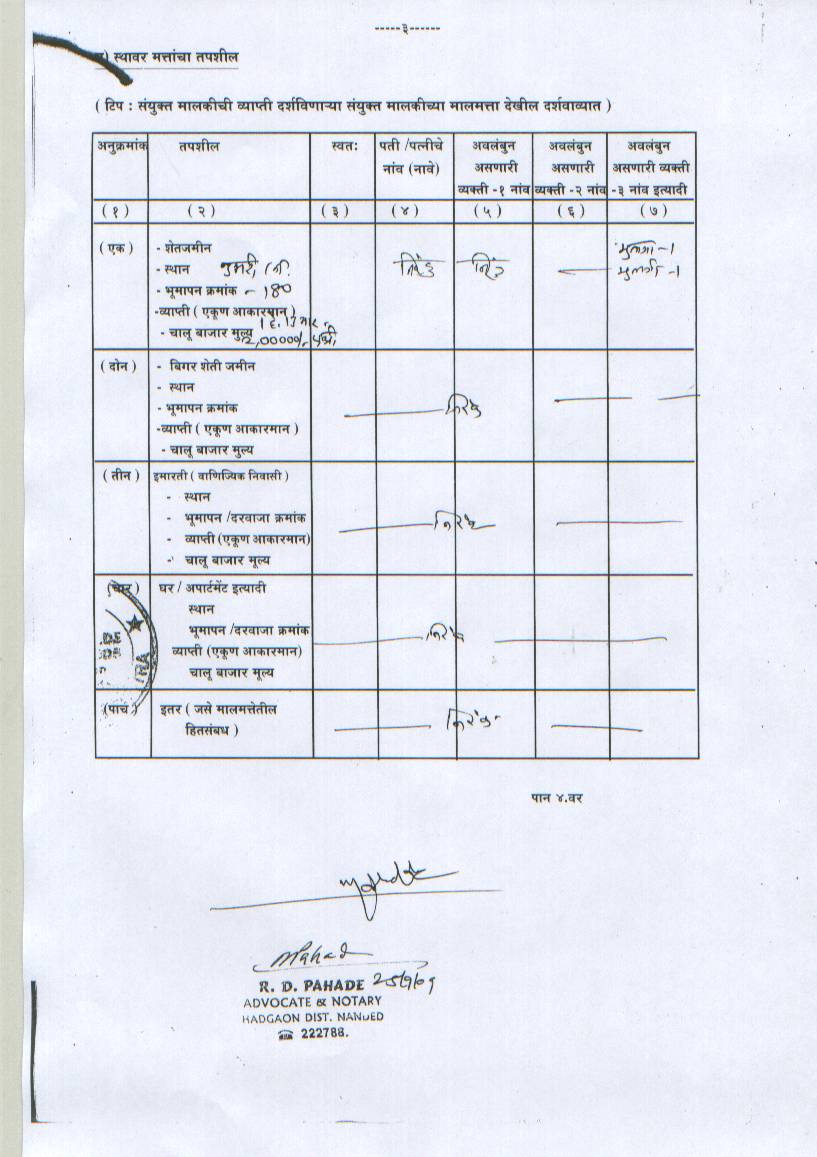 -----३------
) स्थावर मत्तांचा तपशील
( टिप : संयुक्त मालकीची व्याप्ती दर्शविणाऱ्या संयुक्त मालकीच्या मालमत्ता देखील दर्शवाव्यात )
अनुक्रमांक तपशील स्वतः पती /पत्नीचे अवलंबुन अवलंबुन अवलंबुन
नांव (नावे) असणारी असणारी असणारी व्यक्ती
व्यक्ती -१ नांव व्यक्ती -२ नांव -३ नांव इत्यादी
( १ ) ( २ ) ( ३ ) ( ४ ) ( ५ ) ( ६ ) ( ७ )
( एक ) - शेतजमीन मुलगा -1
- स्थान निरंक निरंक
- भूमापन क्रमांक - 180
-व्याप्ती ( एकूण आकारमान )
- चालू बाजार मुल्य
( दोन ) - बिगर शेती जमीन
- स्थान
- भूमापन क्रमांक निरंक
-व्याप्ती ( एकूण आकारमान )
- चालू बाजार मुल्य
( तीन ) इमारती ( वाणिज्यिक निवासी )
- स्थान
- भूमापन /दरवाजा क्रमांक निरंक
- व्याप्ती (एकूण आकारमान)
- चालू बाजार मूल्य
(चार) घर / अपार्टमेंट इत्यादी
स्थान
भूमापन /दरवाजा क्रमांक निरंक
व्याप्ती (एकूण आकारमान)
चालू बाजार मूल्य
(पाच ) इतर ( जसे मालमत्तेतील निरंक
हितसंबध )
पान ४.वर
R. D. PAHADE 25/9/09
ADVOCATE & NOTARY
HADGAON DIST. NANDED
☎ 222788.